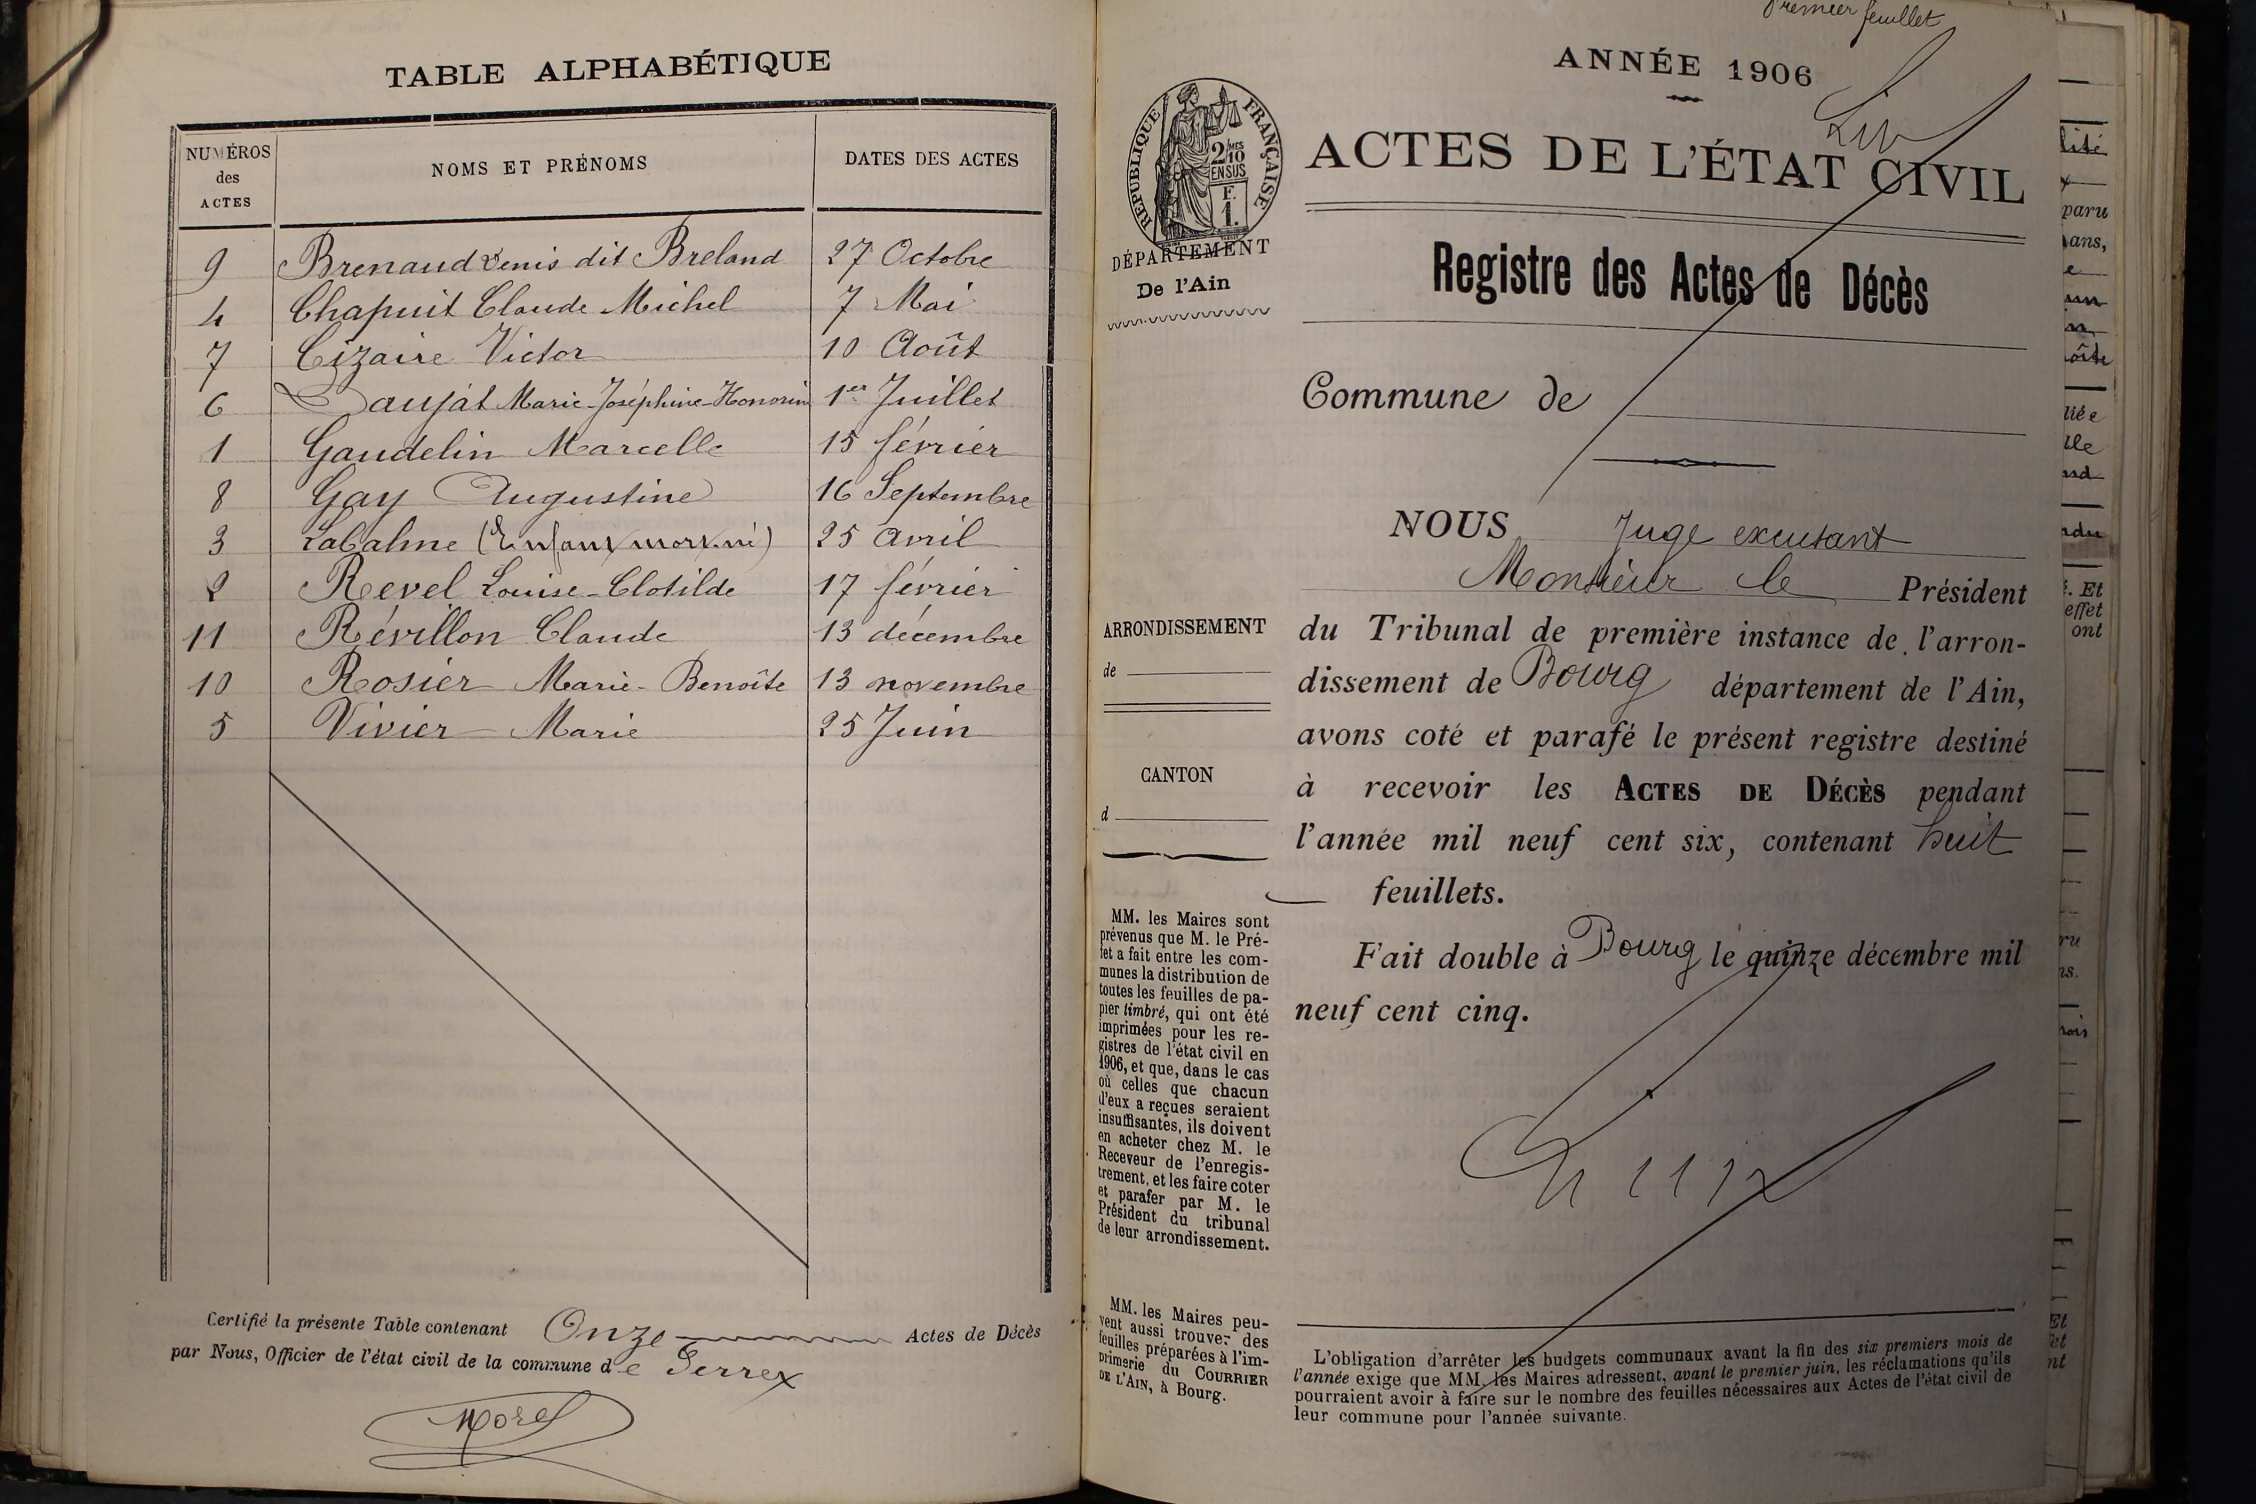 TABLE ALPHABÉTIQUE
NUMÉROS des ACTES NOMS ET PRÉNOMS DATES DES ACTES
9 Brenaud Denis dit Breland 27 Octobre
4 Chapuit Claude Michel 7 Mai
7 Cizaire Victor 10 Août
6 Daujat Marie-Joséphine-Honorine 1er Juillet
1 Gaudelin Marcelle 15 février
8 Gay Augustine 16 Septembre
3 Labalme (Enfant mort-né) 25 Avril
2 Revel Louise-Clotilde 17 février
11 Révillon Claude 13 décembre
10 Rosier Marie-Benoîte 13 novembre
5 Vivier Marie 25 Juin
Certifié la présente Table contenant Onze Actes de Décès
par Nous, Officier de l'état civil de la commune de
Morel
Premier feuillet
ANNÉE 1906
RÉPUBLIQUE FRANÇAISE
2/10MES
EN SUS
F.
1.
ACTES DE L'ÉTAT CIVIL
DÉPARTEMENT
De l'Ain
Registre des Actes de Décès
Commune de
NOUS Juge
Monsieur le Président
ARRONDISSEMENT
de
du Tribunal de première instance de l'arron-
dissement de Bourg département de l'Ain,
avons coté et parafé le présent registre destiné
CANTON
d
à recevoir les ACTES DE DÉCÈS pendant
l'année mil neuf cent six, contenant huit
feuillets.
Fait double à Bourg le quinze décembre mil
neuf cent cinq.
MM. les Maires sont
prévenus que M. le Pré-
fet a fait entre les com-
munes la distribution de
toutes les feuilles de pa-
pier timbré, qui ont été
imprimées pour les re-
gistres de l'état civil en
1906, et que, dans le cas
où celles que chacun
d'eux a reçues seraient
insuffisantes, ils doivent
en acheter chez M. le
Receveur de l'enregis-
trement, et les faire coter
et parafer par M. le
Président du tribunal
de leur arrondissement.
MM. les Maires peu-
vent aussi trouver des
feuilles préparées à l'im-
primerie du COURRIER
DE L'AIN, à Bourg.
L'obligation d'arrêter les budgets communaux avant la fin des six premiers mois de
l'année exige que MM. les Maires adressent, avant le premier juin, les réclamations qu'ils
pourraient avoir à faire sur le nombre des feuilles nécessaires aux Actes de l'état civil de
leur commune pour l'année suivante.